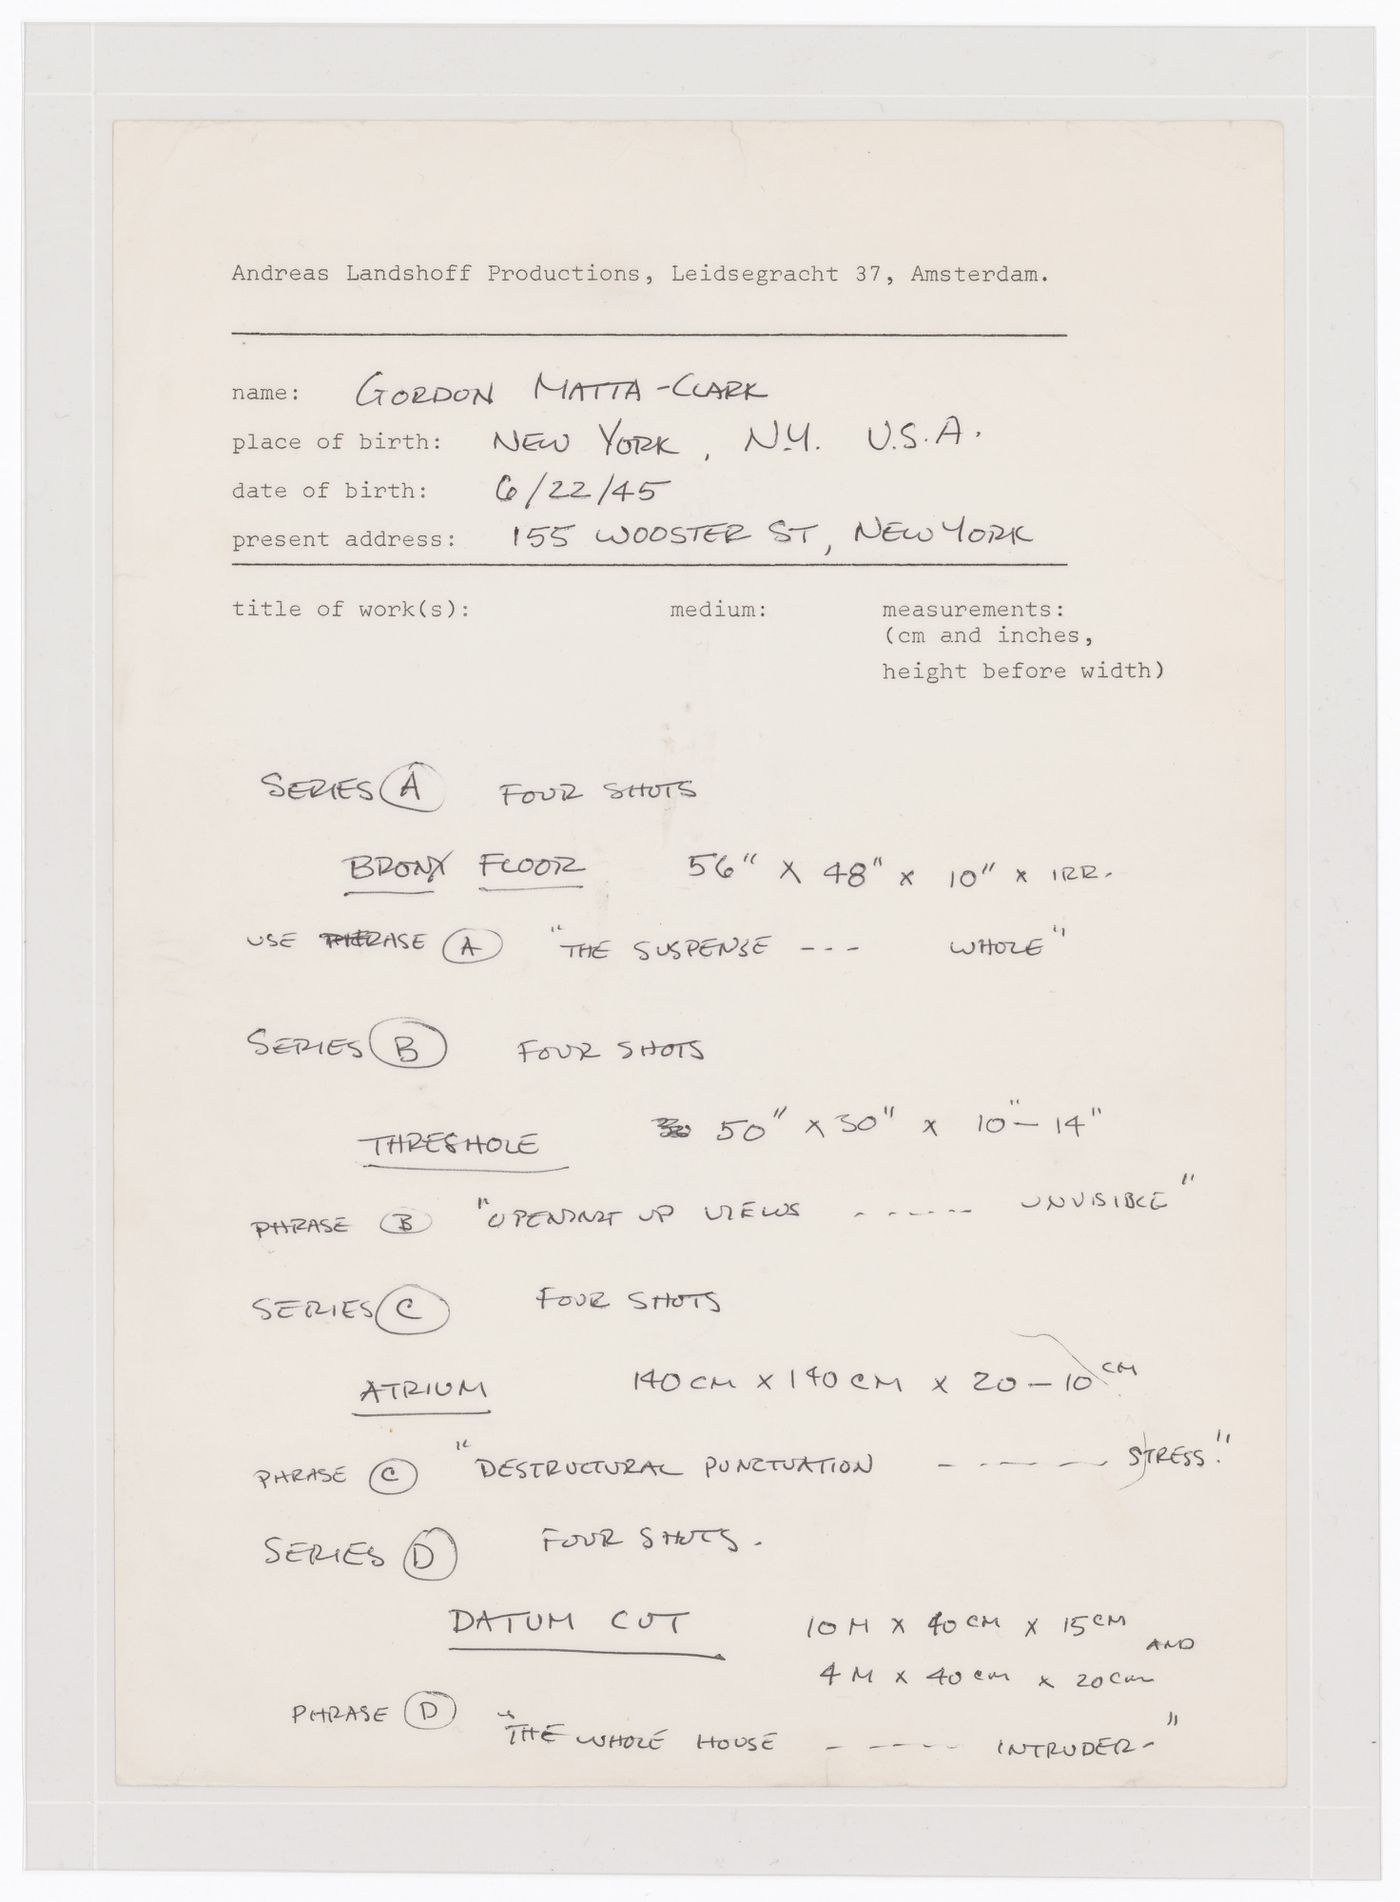 Andreas Landshoff Productions, Leidsegracht 37, Amsterdam.
name: GORDON MATTA-CLARK
place of birth: NEW YORK, N.Y. U.S.A.
date of birth: 6/22/45
present address: 155 WOOSTER ST, NEW YORK
title of work(s): medium: measurements:
(cm and inches,
height before width)
SERIES A FOUR SHOTS
BRONX FLOOR 56" X 48" x 10" x IRR.
USE PHRASE A "THE SUSPENSE --- WHOLE"
SERIES B FOUR SHOTS
THRESHOLE 50" x 30" x 10"-14"
PHRASE B "OPENING UP VIEWS ------ UNVISIBLE"
SERIES C FOUR SHOTS
ATRIUM 140 CM x 140 CM x 20-10 CM
PHRASE C "DESTRUCTURAL PUNCTUATION ------ STRESS."
SERIES D FOUR SHOTS.
DATUM CUT 10 M x 40 CM x 15 CM
AND
4 M x 40 cm x 20 cm
PHRASE D "THE WHOLE HOUSE ------ INTRUDER-"